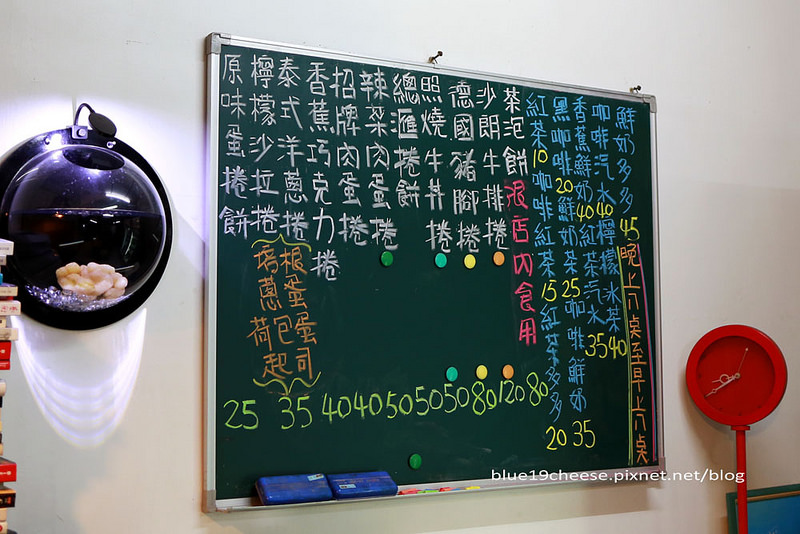 原味蛋捲餅
檸檬沙拉捲
泰式洋蔥捲
香蕉巧克力捲
招牌肉蛋捲
辣菜肉蛋捲
總匯捲餅
照燒牛丼捲
德國豬腳捲
沙朗牛排捲
茶泡餅 限店內食用
培根
蔥蛋
荷包蛋
起司
25 35 40 40 50 50 50 80 120 80
紅茶10 咖啡紅茶15 紅茶多多20
黑咖啡20 鮮奶茶25 咖啡鮮奶35
香蕉鮮奶40 紅茶汽水35
咖啡汽水40 檸檬冰茶40
鮮奶多多45
晚上八桌至早上八桌
blue19cheese.pixnet.net/blog